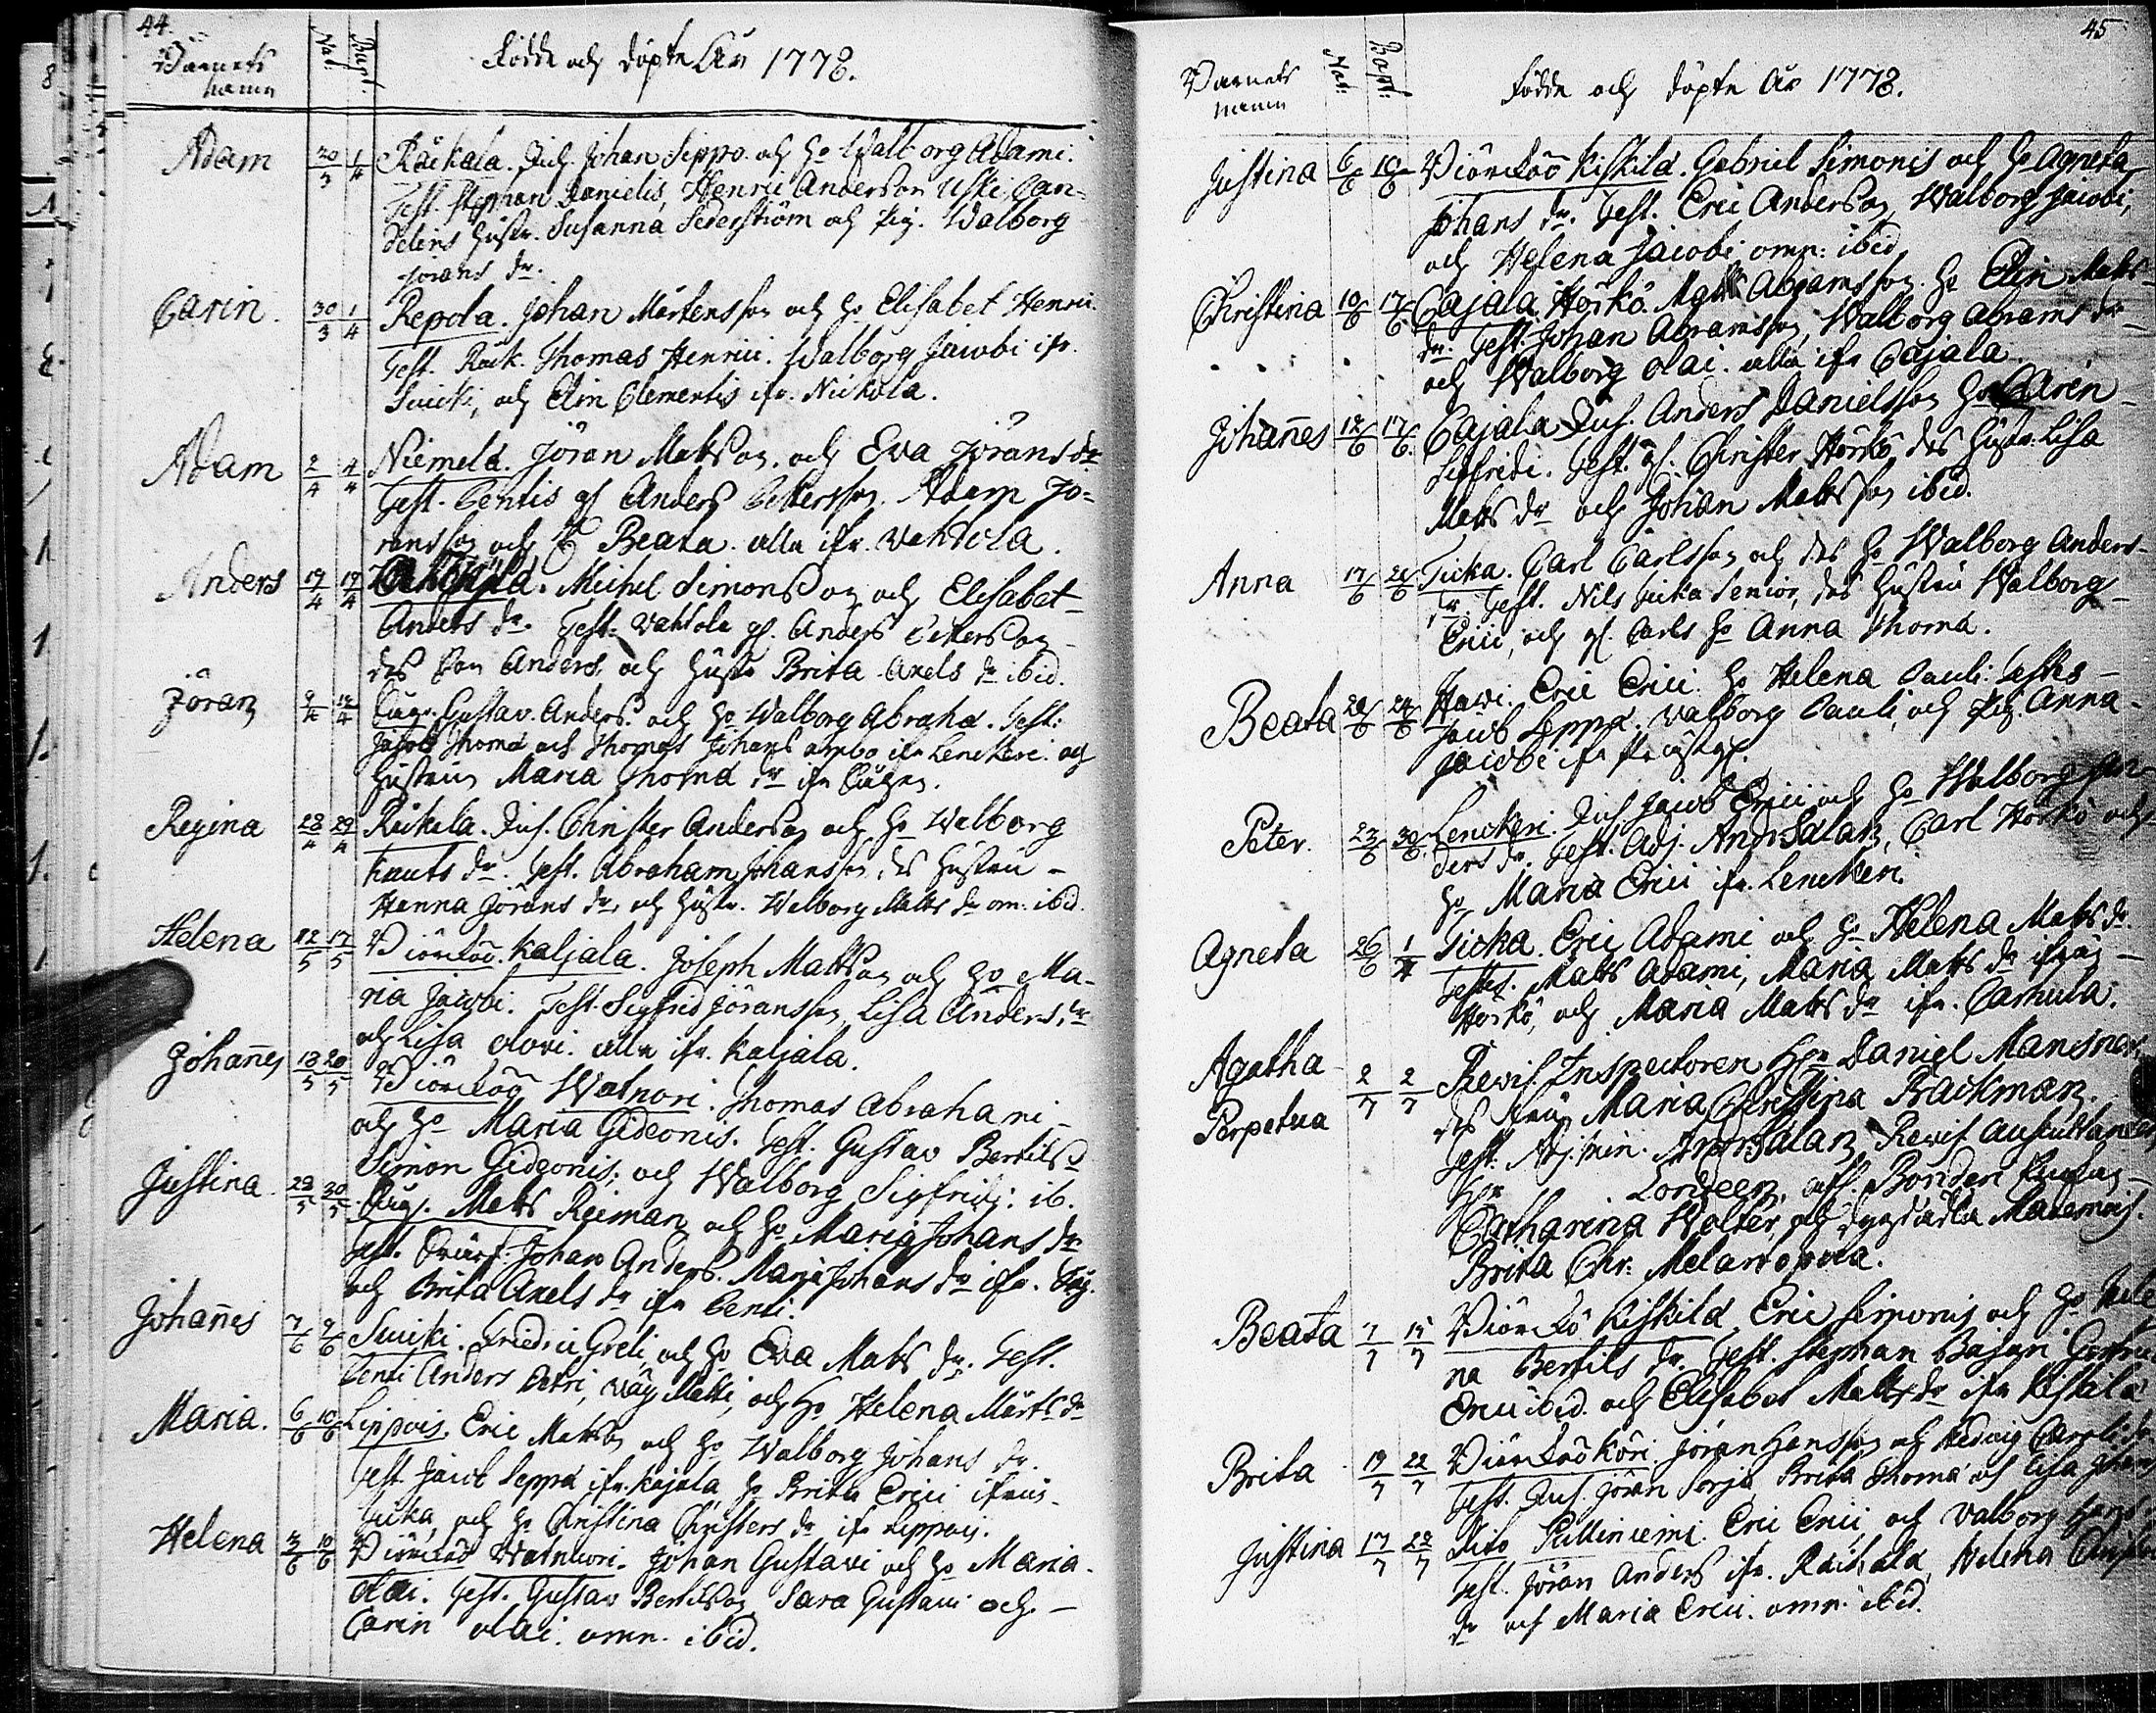 44.
Barnets namn Nat: Bapt: Födde och döpte År 1778.
Adam 30/3 1/4 Räikälä. Inh. Johan Seppo. och h. Walborg Adami.
Test. Stephan Danielis, Henric Andersson Uski, Can-
delins hustr. Susanna Sederström och pig. Walborg
Jörans dr.
Carin. 30/3 1/4 Repola. Johan Mårtensson och h. Elisabet Henrici.
Test. Thomas Henrici. Walborg Jacobi ifr.
Suicki, och Elin Clementis ifr. Nickola.
Adam 2/4 4/4 Niemelä. Jöran Mattson. och Eva Jörans dr
Test. Pentis Anders Pettersson. Adam Jö-
ransson och Beata. alla ifr. Vahtola.
Anders 19/4 19/4 Michel Simonson och Elisabet
Anders dr. Test: Vahtola Anders Petterson
des son Anders, och hustr. Brita Axels dr ibid.
Jöran 9/4 12/4 Gustav. Anders. och h. Walborg Abrahæ. Test:
Jacob Thomæ och Thomas Johans ambo ifr Lenckeri. och
hustrun Maria Thomæ dr ifr
Regina 28/4 29/4 Räikälä. Inh. Christer Anderson och h. Walborg
Knuts dr. Test. Abraham Johansson, des hustru
Hanna Jörans dr, och hustr. Walborg Matts dr om: ibid.
Helena 12/5 17/5 Viörckö. Kaljala. Joseph Mattson och h. Ma-
ria Jacobi. Test. Sigfrid Jöransson, Lisa Anders dr
och Lisa Olovi. alla ifr. Kaljala.
Johañes 18/5 20/5 Viörckö Watnori. Thomas Abrahami
och h. Maria Gideonis. Test. Gustav Bertils
Simon Gideonis, och Walborg Sigfridi: ib.
Justina 29/5 30/5 Matts Reiman och h. Maria Johans dr
Test. Johan Anders. Maria Johans dr ifr.
och Brita Axels dr ifr Penti.
Johañes 7/6 9/6 Suicki. Fredric Greli, och h. Eva Matts dr. Test.
Penti Anders Petri, Matti, och h. Helena Mårts dr
Maria. 6/6 10/6 Lippois. Eric Mattson och h. Walborg Johans dr.
Test. Jacob Seppä ifr. Kajala h. Brita Erici ifrån
Ticka, och h. Christina Christers dr ifr Lippois.
Helena 3/6 10/6 Viörckö Watnuori. Johan Gustavi och h. Maria
Olai. Test. Gustav Bertilson Sara Gustavi och
Carin Olai. omn. ibid.
45
Barnets namn Nat: Bapt: Födde och döpte År 1778.
Justina 6/6 10/6 Viörckö Kiskilä. Gabriel Simonis och h. Agneta
Johans dr. Test. Eric Anderson, Walborg Jacobi,
och Helena Jacobi omn: ibid
Christina 10/6 17/6 Cajala Hörkö. Abramsson. h. Elin Matts
dr. Test: Johan Abramsson, Walborg Abrams dr
och Walborg Olai. alla ifr Cajala.
Johañes 12/6 17/6 Cajala Inh. Anders Danielsson h. Carin
Sigfridi. Test. Christer Hörkö, des hustr. Lisa
Matts dr och Johan Mattsson ibid.
Anna 17/6 21/6 Ticka. Carl Carlsson och des h. Walborg Anders
dr. Test. Nils Ticka Senior, des hustru Walborg
Erici, och Carls h. Anna Thomæ.
Beata 20/6 24/6 Hawi. Eric Erici. h. Helena Pauli: Testes
Jacob Seppä. Walborg Pauli, och pig. Anna
Jacobi ifr
Peter. 23/6 30/6 Lenckeri. Inh. Jacob Erici och h. Walborg An-
ders dr. Test. Adj. And. Salan, Carl Hörkö och
h. Maria Erici ifr. Lenckeri.
Agneta 26/6 1/7 Ticka. Eric Adami och h. Helena Matts dr
Testes. Matts Adami, Maria Matts dr ifrån
Hörkö, och Maria Matts dr ifr. Camula.
Agatha Perpetua 2/7 2/7 Revis. Inspectoren Hr Daniel Mansner,
des fru Maria Christina Brackman.
Test. Adj. min. And. Salan, Revis. Auscultanten
Hr Lordeen,
Catharina Wolter, och Mademois.
Brita Chr: Melartopæa.
Beata 7/7 15/7 Viörckö Kiskilä. Eric Simonis och h. Hele-
na Bertils dr. Test. Stephan
Erici ibid. och Elisabet Matts dr ifr Kiskilä
Brita 19/7 22/7 Viörckö Köri. Jöran Hansson och Hedvig Caroli dr
Test. Inh. Jöran Sorjo Brita Thomæ och Lisa
Justina 17/7 22/7 Dito Pullinniemi. Eric Erici och Walborg Hans
Test. Jöran Anders ifr. Räikälä, Helena
dr och Maria Erici. omn. ibid.